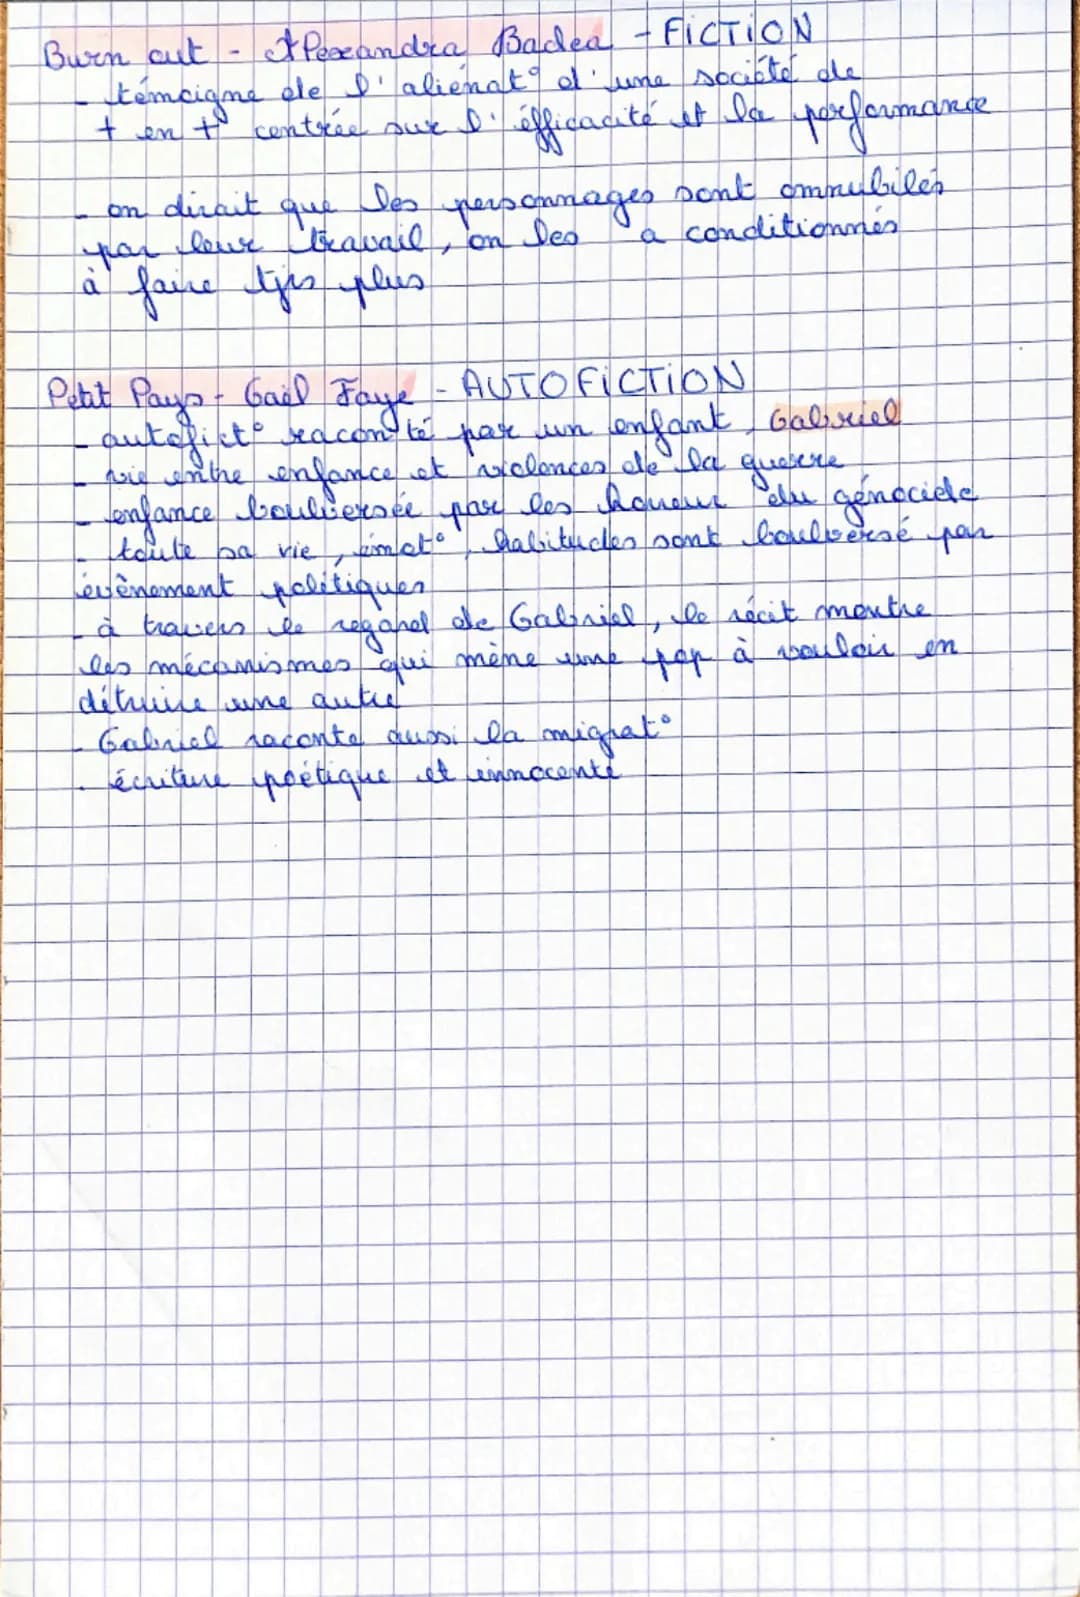 Burn out - Alexandra Badea - FiCTiON
- témoigne de l'aliénat° d'une société de
+ en + centrée sur l'éfficacité et la performance
- on dirait que les personnages sont omnubilés
par leur travail, on les a conditionnés
à faire tjrs plus
Petit Pays - Gaël Faye - AUTOFiCTiON
- autofict° racontée par un enfant, Gabriel
- vie entre enfance et violences de la guerre
- enfance bouleversée par les horreur du génocide
- toute sa vie, émot°, habitudes sont boulversé par
évènement politiques
- à travers le regard de Gabriel, le récit montre
les mécanismes qui mène une pop à vouloir en
détruire une autre
- Gabriel raconte aussi la migrat°
- écriture poétique et innocente